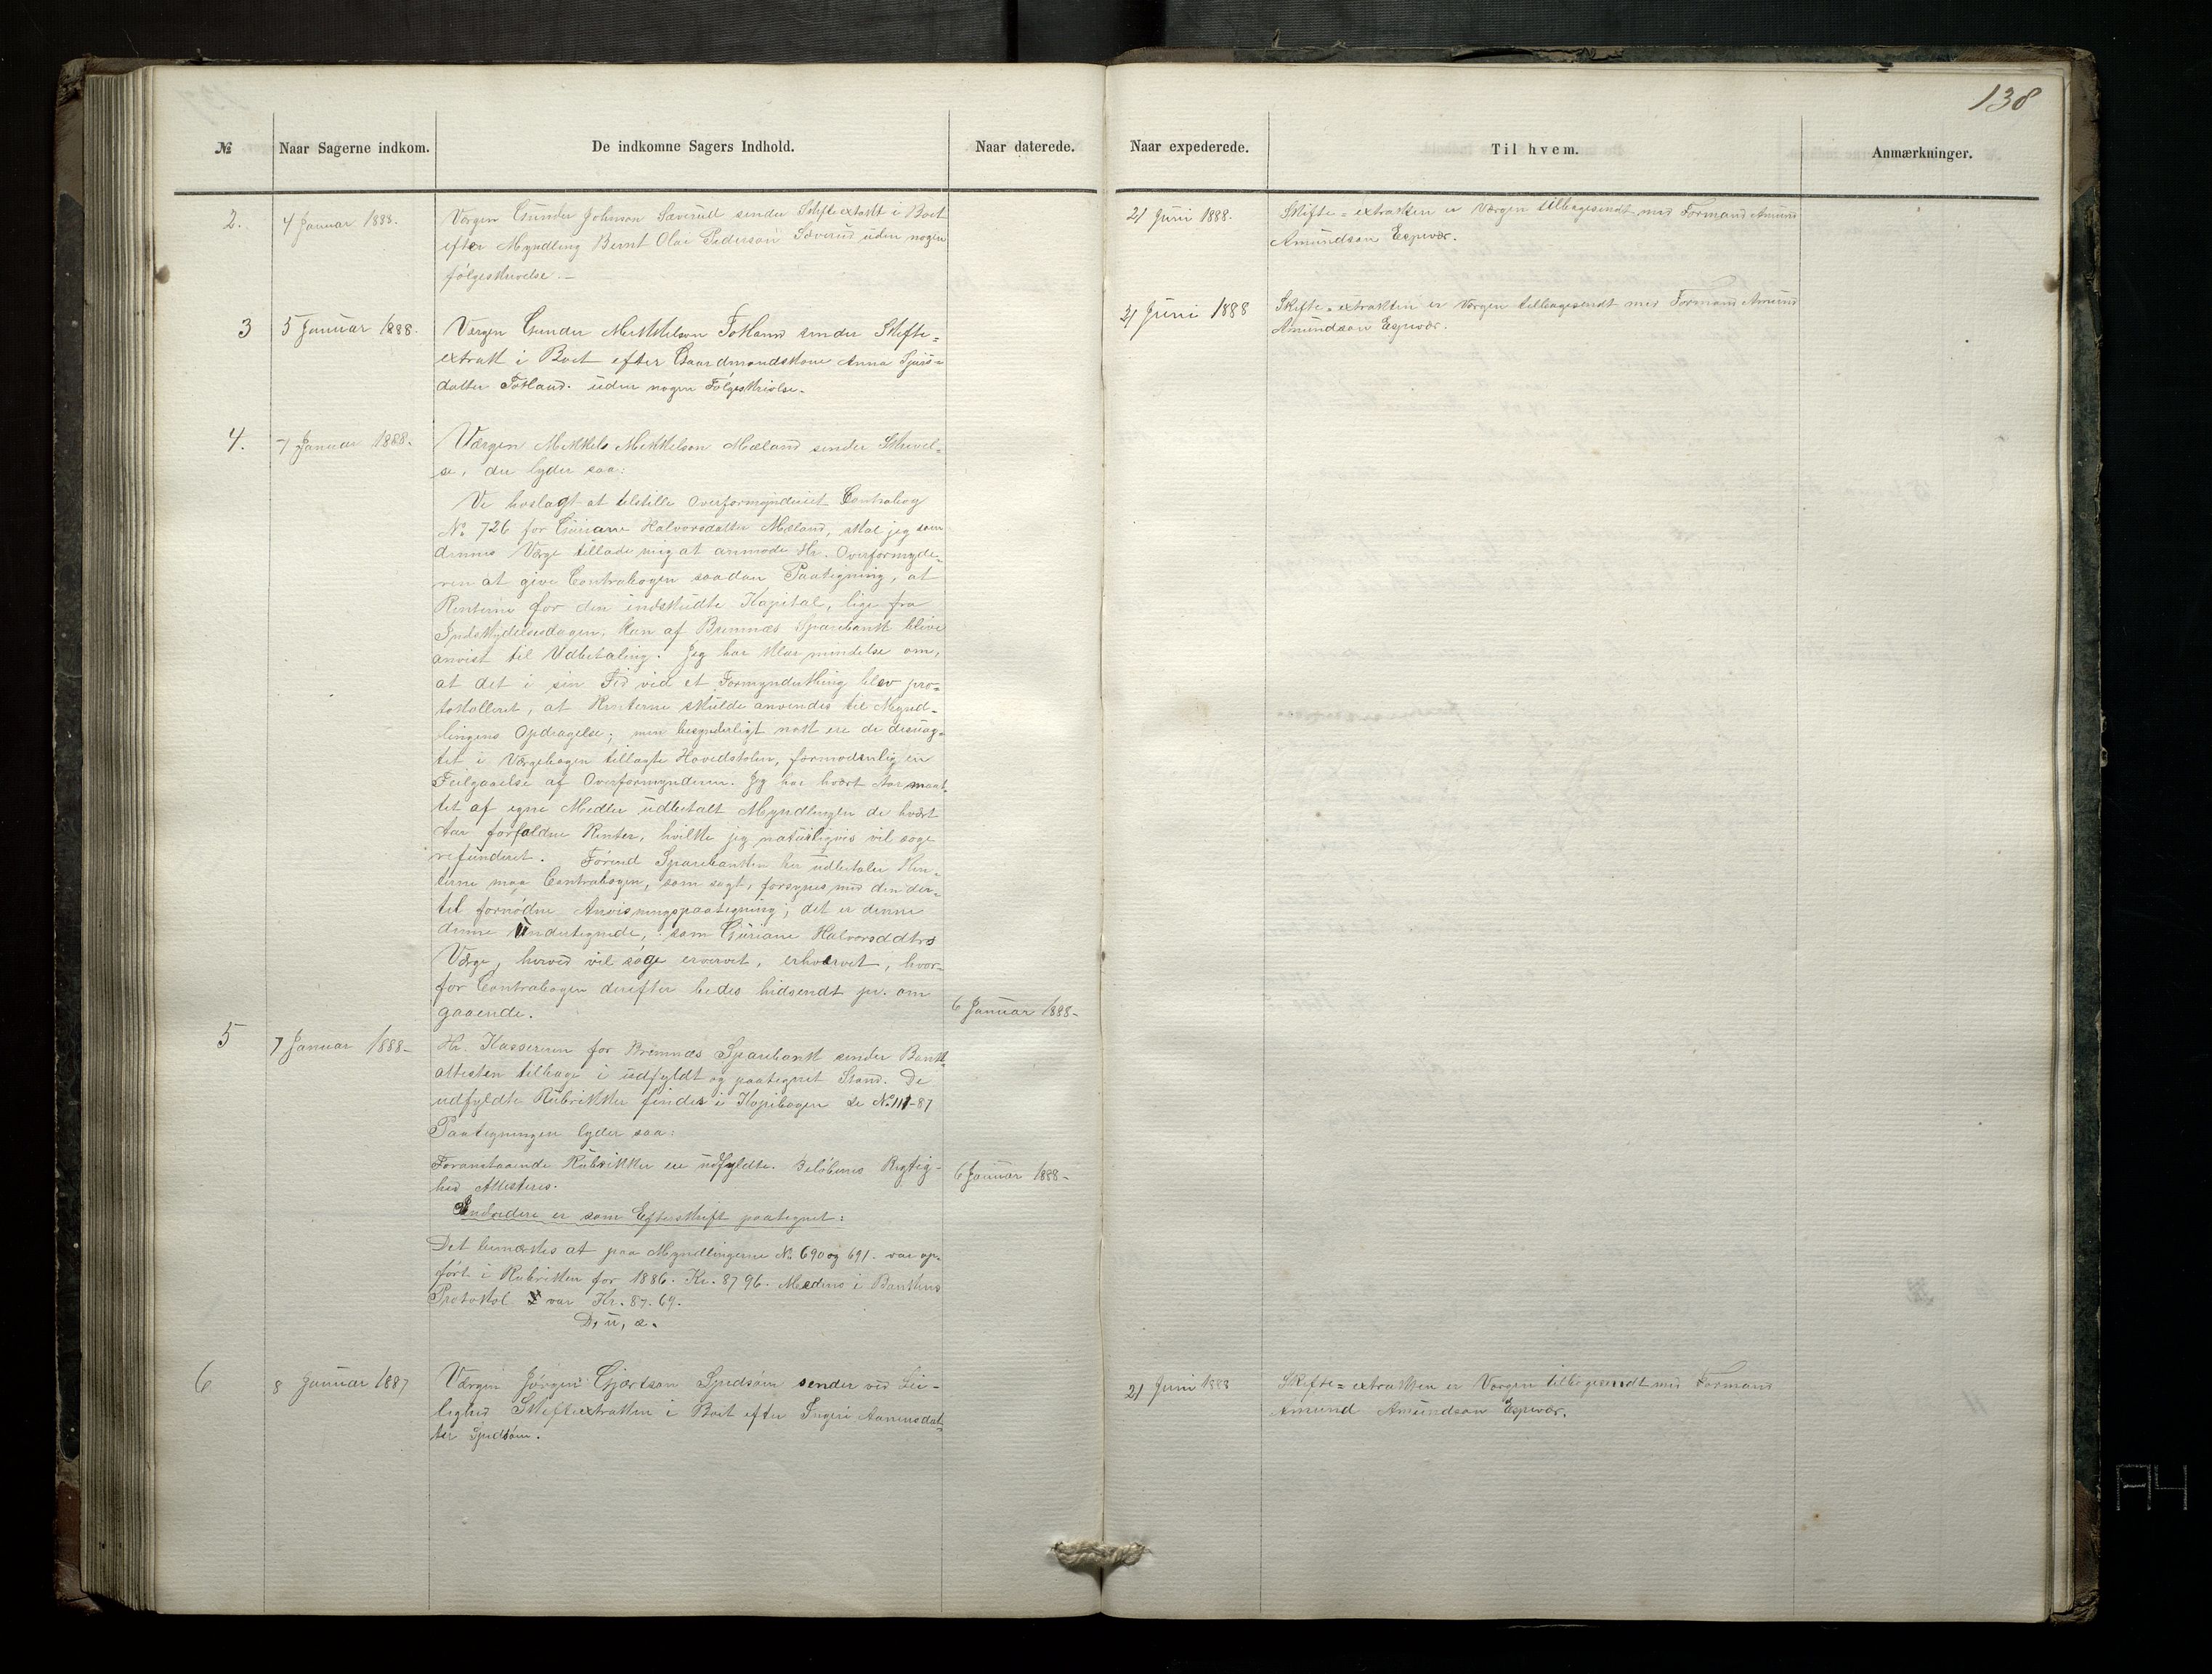 138
№
Naar Sagerne indkom.
De indkomne Sagers Indhold.
Naar daterede.
Naar expederede.
Til hvem.
Anmærkninger.
2.
4 Januar 1888.
Værgen Gunder Johnson Sæverud sender Skifteextrakt i Boet
efter Myndling Bernt Olai Pederson Sæverud uden nogen
følgeskrivelse. –
21 Juni 1888.
Skifte=extrakten er Værgen tilbagesendt med Formand Amund
Amundson Espevær.
3
5 Januar 1888.
Værgen Gunder Mikkelson Totland sender Skifte=
extrakt i Boet efter Gaardmandskone Anna Sjurs=
datter Totland. uden nogen Følgeskrivlse.
21 Juni 1888
Skifte=extrakten er Værgen tilbagesendt med Formand Amund
Amundson Espevær.
4.
7 Januar 1888.
Værgen Mikkels Mikkelson Mæland sender Skrivel=
se, der lyder saa:
Ve hoslagt at tilstille Overformynderiet Contrabog
№ 726 for Guriane Halvorsdatter Mæland, skal jeg som
dennes Værge tillade mig at anmode Hr. Overformynde-
ren at give Contrabogen saadan Paategning, at
Renterne for den indskudte Kapital, lige fra
Indskydelsesdagen, kan af Bremnæs Sparebank blive
anvist til Udbetaling. Jeg har klar mindelse om,
at det i sin Tid ved et Formynderthing blev pro=
tokolleret, at Renterne skulde anvendes til Mynd-
lingens Opdragelse; men besynderligt nok ere de desuag=
tet i Værgebogen tillagte Hovedstolen, formodenlig en
Feilgaaelse af Overformynderen. Jeg har hvært Aar maat-
tet af egne Midler udbetalt Myndlingen de hvært
Aar forfaldne Renter, hvilke jeg naturligvis vil søge
refunderet. Førend Sparebanken her udbetaler Ren-
terne maa Contrabogen, som sagt, forsynes med den der=
til fornødne Anvisningspaategning; det er denne
denne Undertegnede, som Guriane Halvorsddtrs
Værge, herved vil søge ervervet, erhvervet, hvor-
for Contrabogen derefter bedes hidsendt pr. om
gaaende.
6 Januar 1888-
5
7 Januar 1888-
Hr. Kassereren for Bremnæs Sparebank sender Bank-
attesten tilbage i udfyldt og paategnet Stand. De
udfyldte Rubrikker findes i Kopibogen se №111-87
Paategningen lyder saa:
Foranstaaende Rubrikker ere udfyldte. Beløbenes Rigtig-
hed Attesteres.
6 Januar 1888-
Endvidere er som Efterskrift paategnet:
Det bemærkes at paa Myndlingerne № 690 og 691. var op-
ført i Rubrikken for 1886. Kr. 87 96. Medens i Bankens
Protokol var Kr. 87. 69.
D, u, s.
6
8 Januar 1887
Værgen Jørgen Gjærtson Spidsøen sender ved Lei-
lighed Skifteextrakten i Boet efter Ingeri Aamundat-
ter Spidsøen.
21 Juni 1888
Skifte=extrakten er Værgen tilbagesendt med Formand
Amund Amundson Espevær.
A4